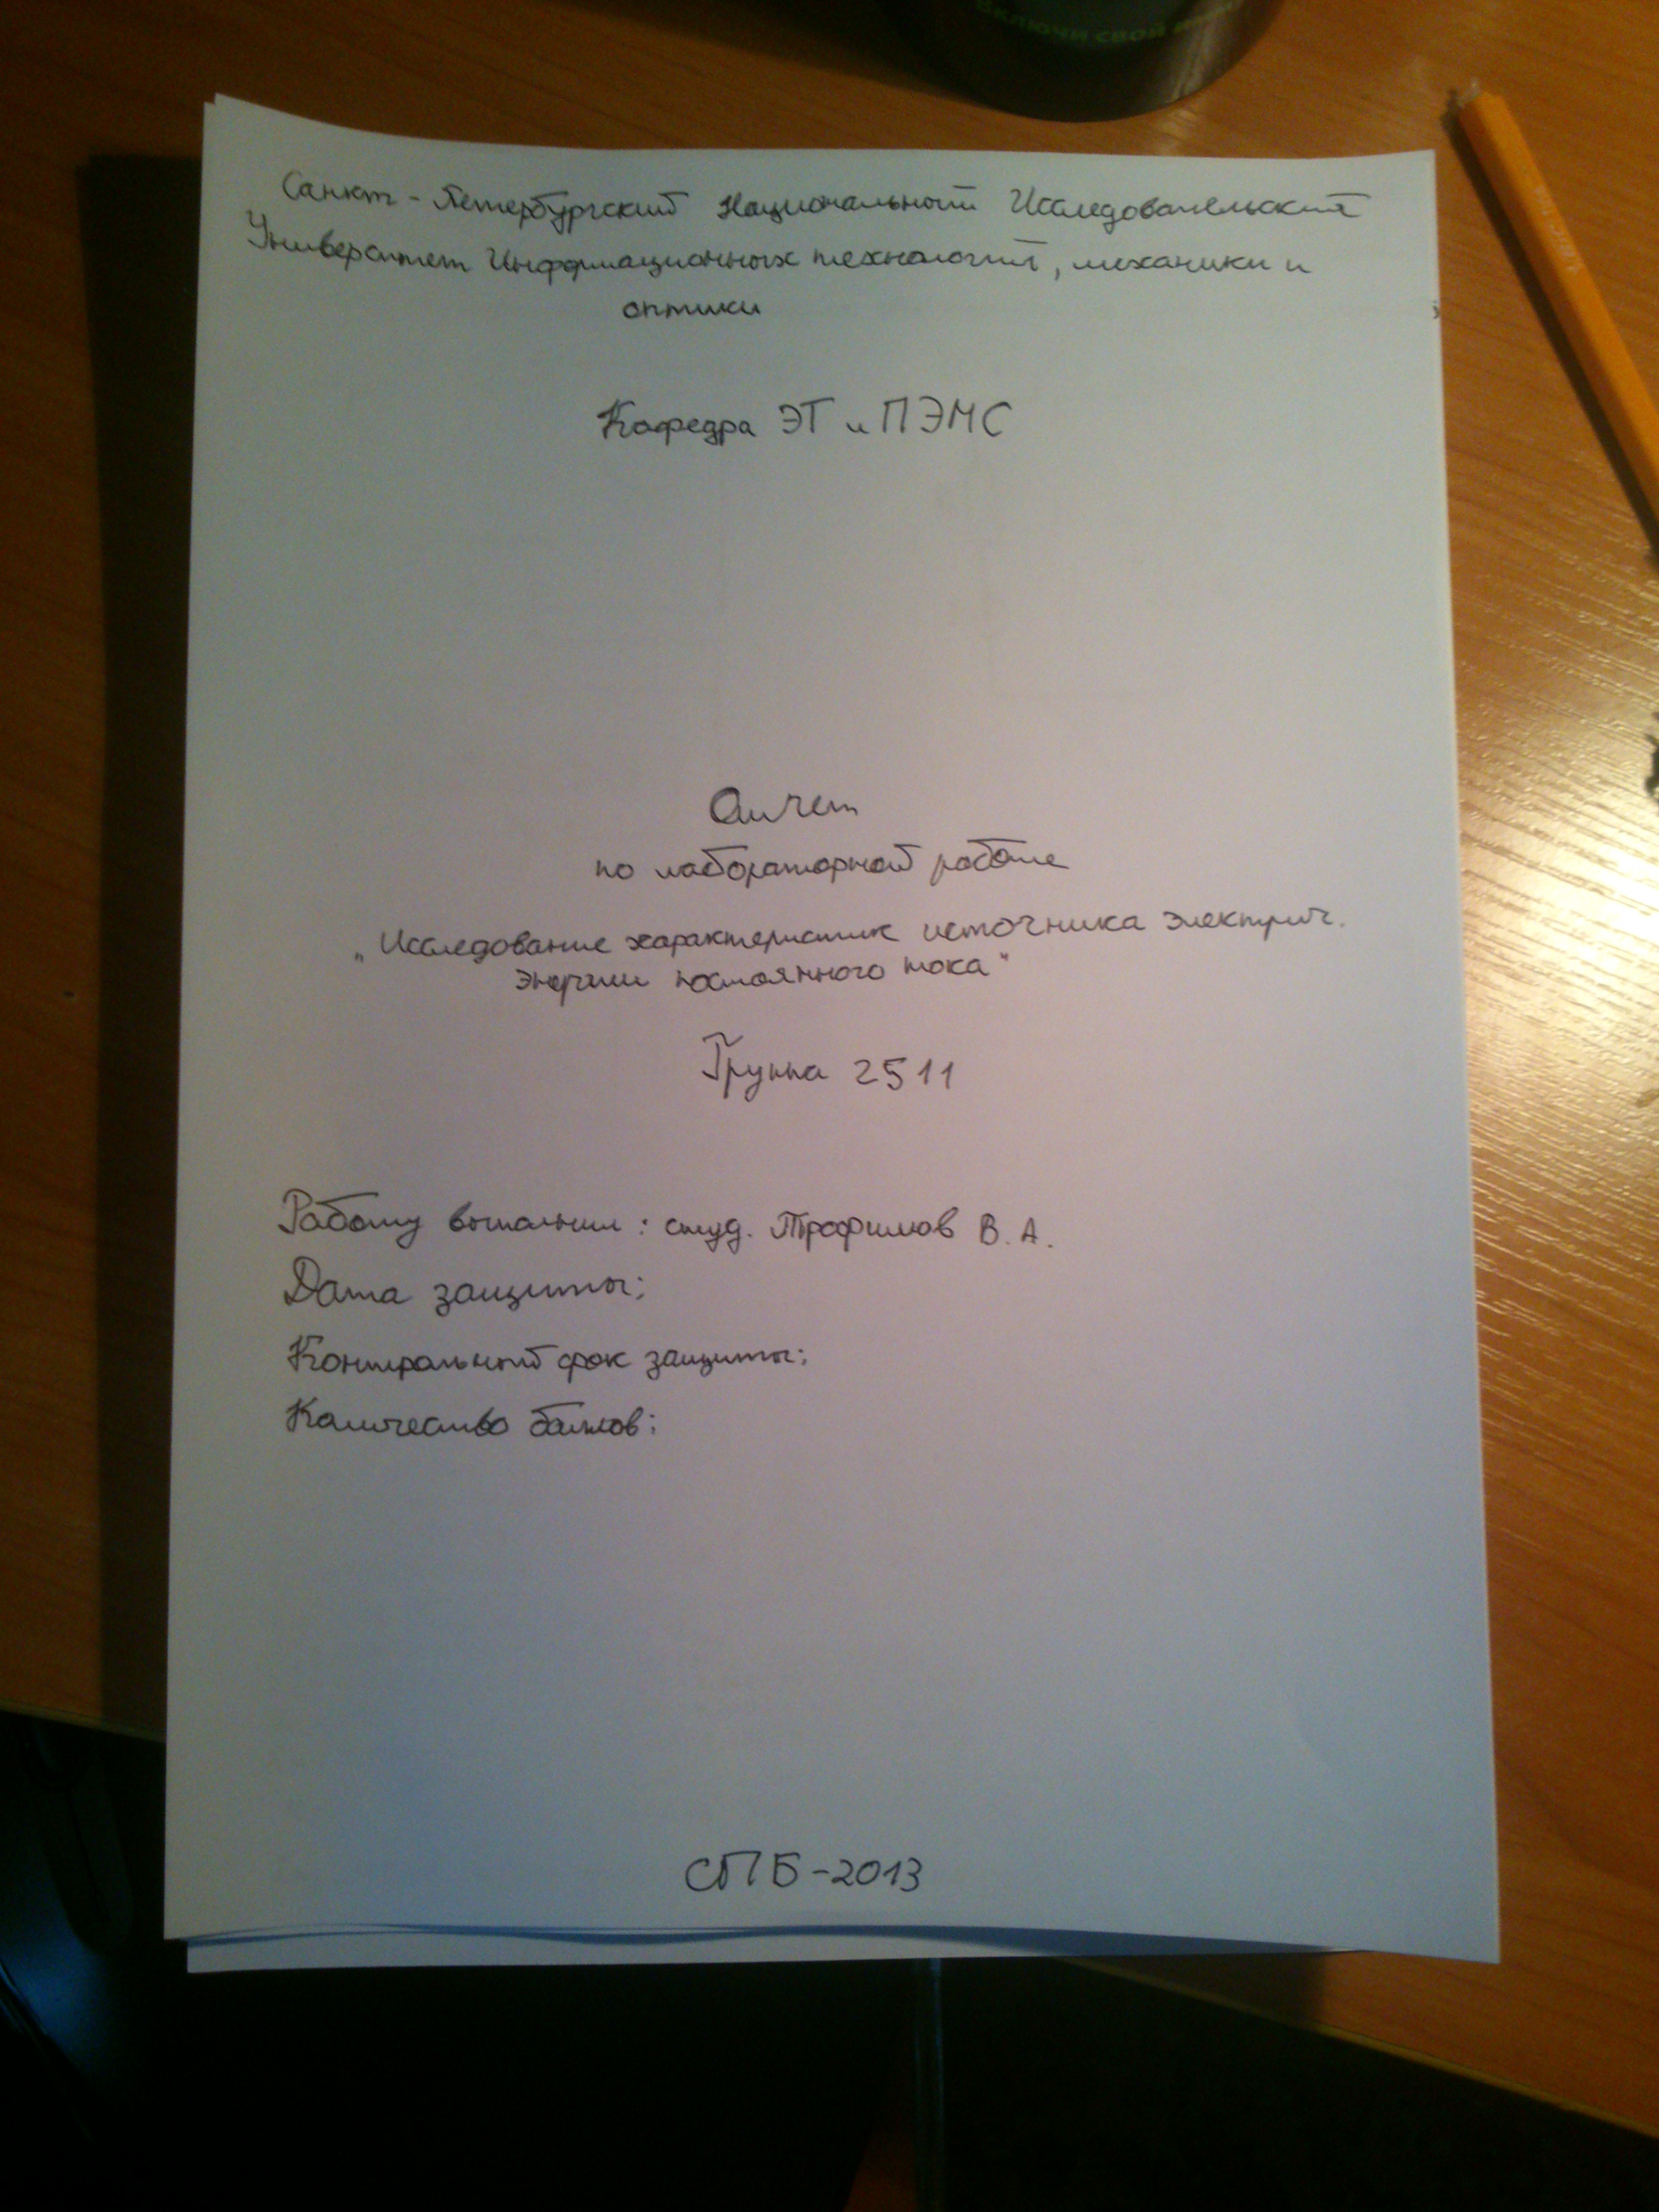 Включи свой
Санкт-Петербургский Национальный Исследовательский
Университет Информационных технологий, механики и
оптики
Кафедра ЭТ и ПЭМС
Отчет
по лабораторной работе
„Исследование характеристик источника электрич.
энергии постоянного тока"
Группа 2511
Работу выполнил: студ. Трофимов В.А.
Дата защиты:
Контрольный срок защиты:
Количество баллов:
СПБ-2013